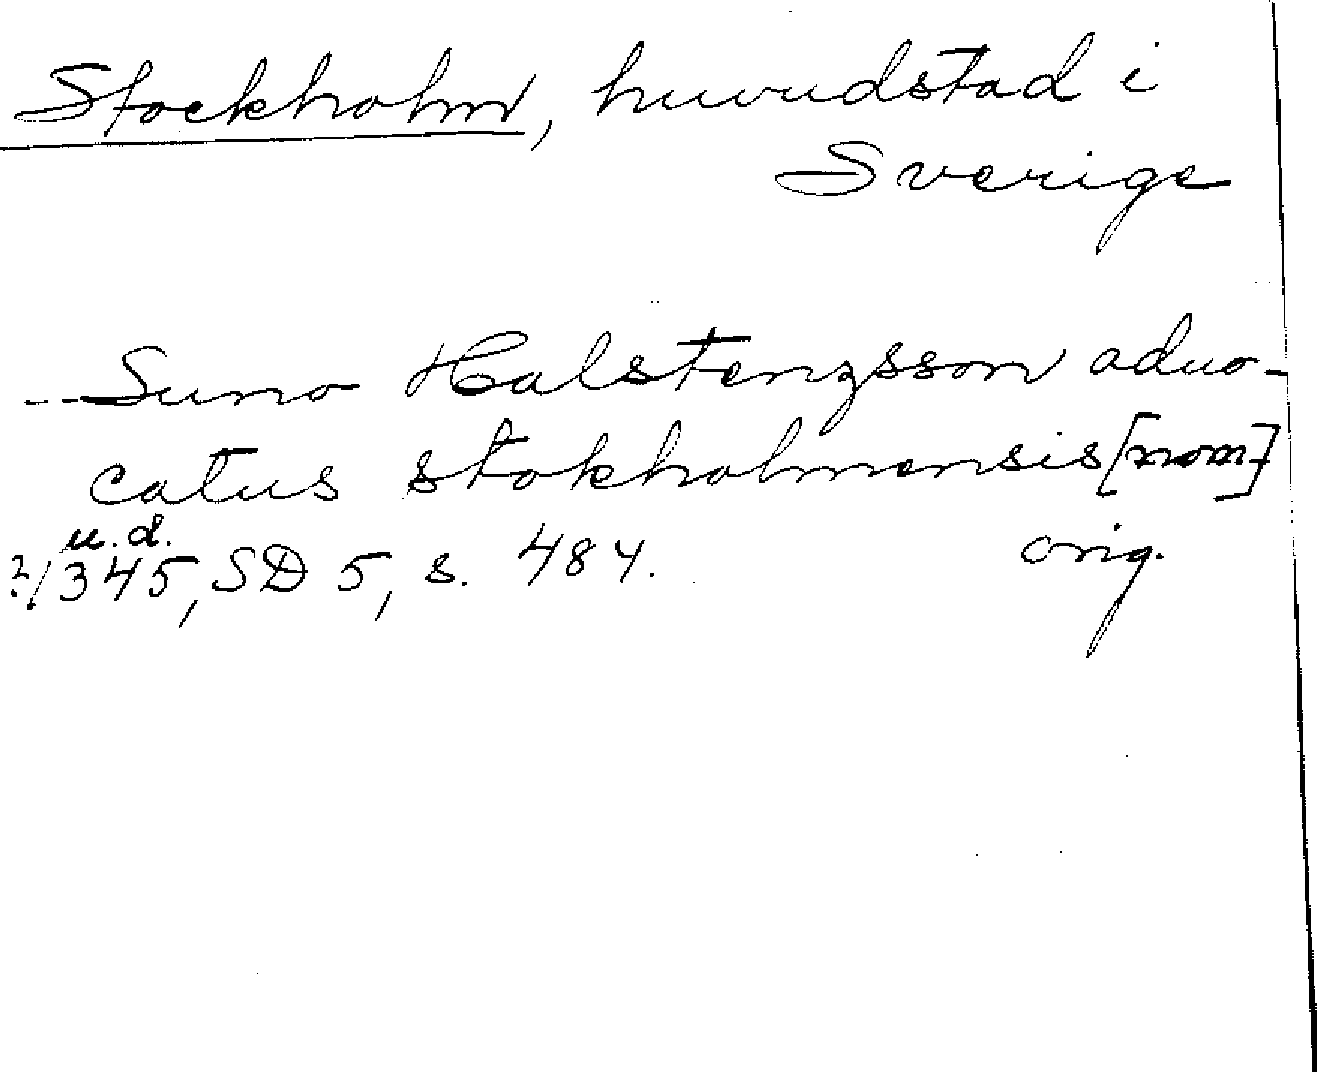 Stockholm, huvudstad i
Sverige
--Suno Halstenzsson aduo-
catus stokholmensis [nom]
u.d.
?/345, SD 5, s. 484. orig.